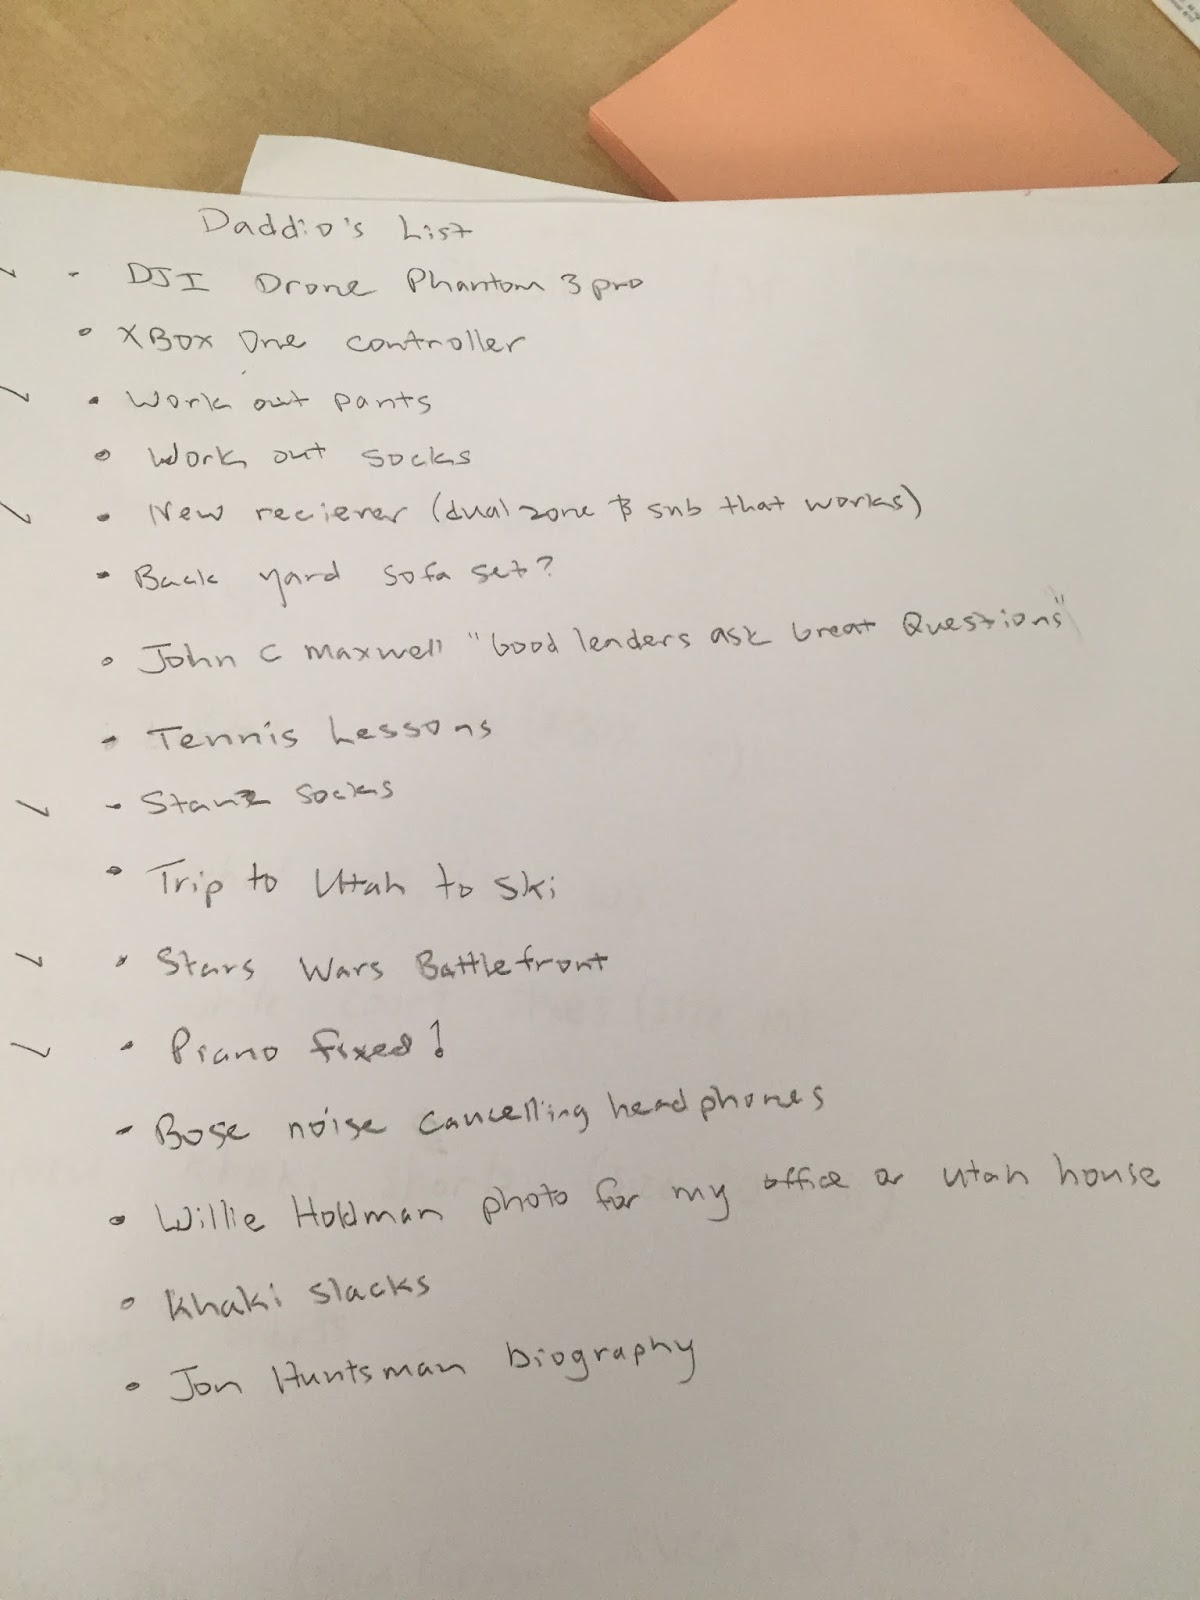 Daddio's List
✓ - DJI Drone Phantom 3 pro
• XBox One controller
✓ • Work out pants
• Work out socks
✓ • New reciever (dual zone & sub that works)
- Back yard sofa set?
• John C Maxwell "Good leaders ask Great Questions"
- Tennis Lessons
✓ - Stanz socks
• Trip to Utah to Ski
✓ • Stars Wars Battlefront
✓ • Piano fixed!
- Bose noise cancelling headphones
• Willie Holdman photo for my office or Utah house
• Khaki slacks
• Jon Huntsman biography